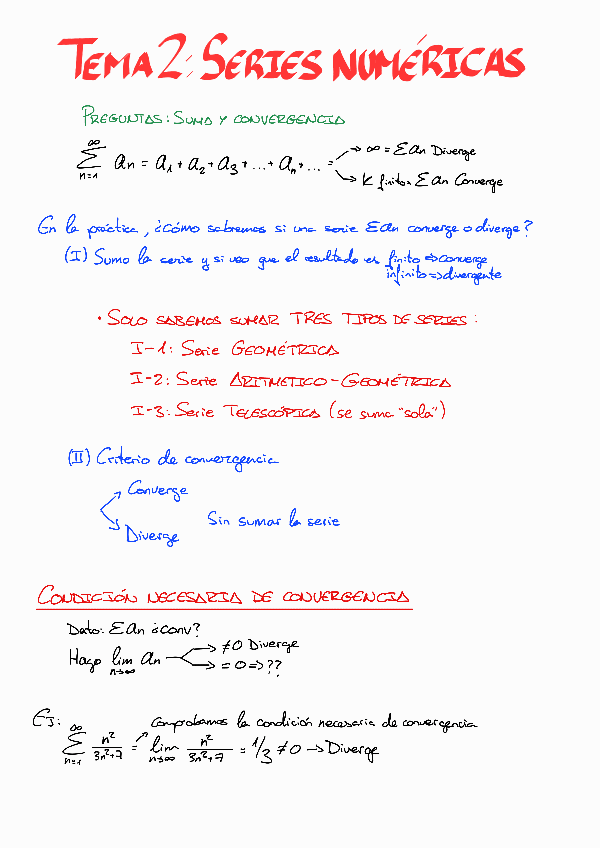 TEMA 2: SERIES NUMÉRICAS
PREGUNTAS: SUMA Y CONVERGENCIA
∞ Σ n=1 an = a1 + a2 + a3 + ... + an + ... = → ∞ = Σ an Diverge
→ K finito = Σ an Converge
En la práctica, ¿Cómo sabremos si una serie Σ an converge o diverge?
(I) Sumo la serie y si veo que el resultado es finito ⇒ converge
infinito ⇒ divergente
• SOLO SABEMOS SUMAR TRES TIPOS DE SERIES:
I-1: Serie GEOMÉTRICA
I-2: Serie ARITMETICO-GEOMÉTRICA
I-3: Serie TELESCÓPICA (se suma "sola")
(II) Criterio de convergencia
Converge
Sin sumar la serie
Diverge
CONDICIÓN NECESARIA DE CONVERGENCIA
Dato: Σ an ¿conv?
Hago lim n→∞ an → ≠0 Diverge
→ = 0 ⇒ ??
EJ: Comprobamos la condición necesaria de convergencia
∞ Σ n=1 n²/3n²+7 = lim n→∞ n²/3n²+7 = 1/3 ≠ 0 → Diverge